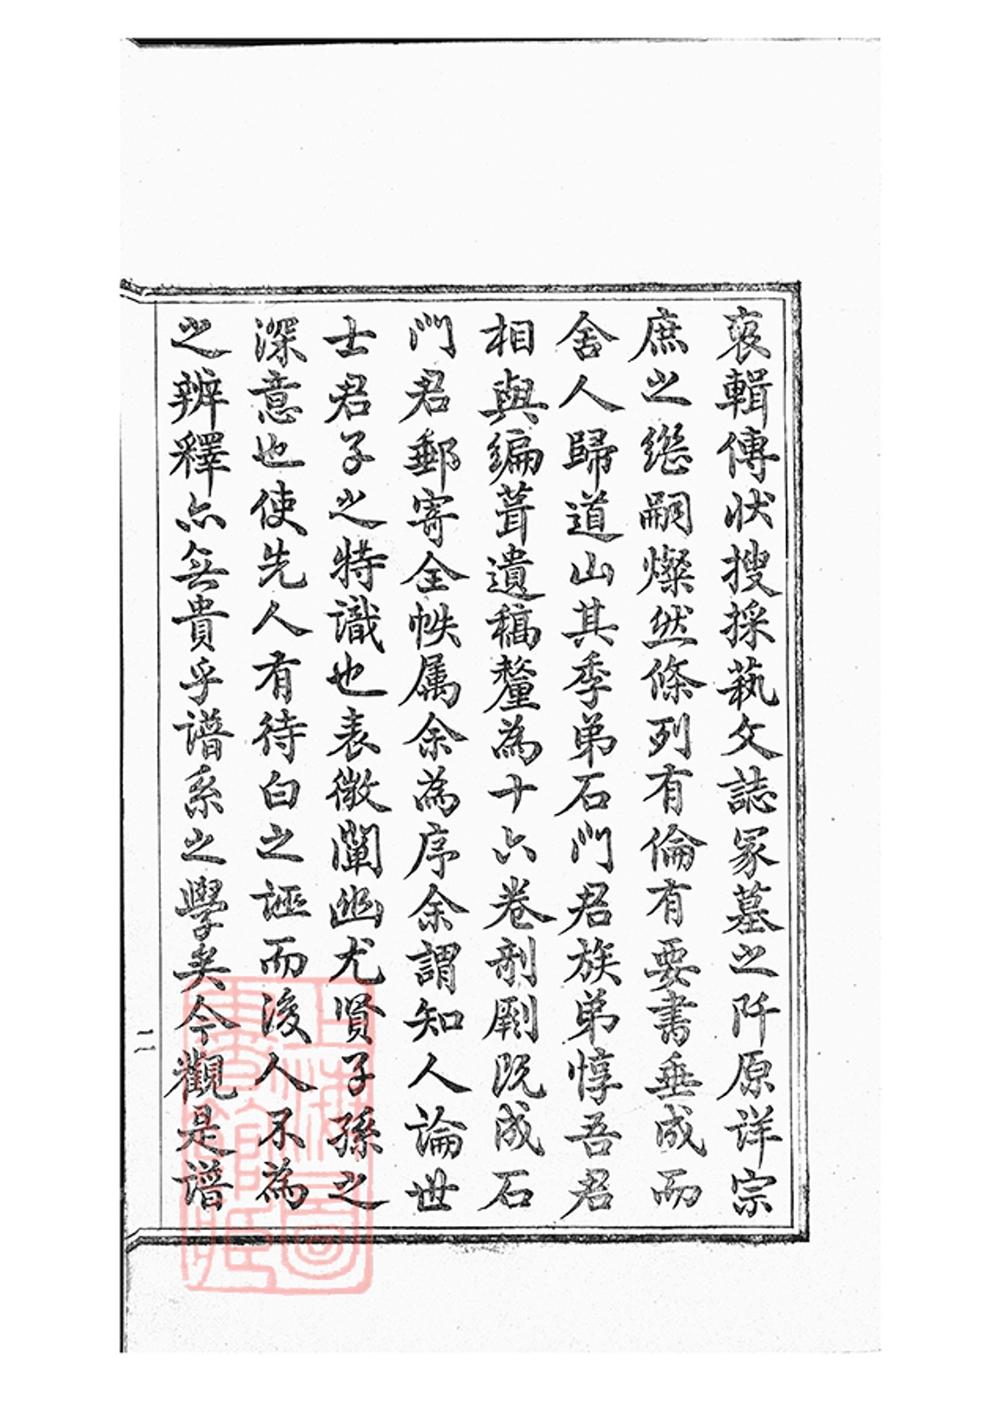 裒輯傳狀搜採藝文誌冢墓之阡原详宗
庶之继嗣燦然條列有倫有要書垂成而
舍人歸道山其季弟石门君族弟惇吾君
相與编葺遺稿釐為十六卷剞劂既成石
门君郵寄全帙属余為序余謂知人論世
士君子之特識也表微闡幽尤贤子孫之
深意也使先人有待白之誣而後人不為
之辨釋亦無貴乎谱系之學矣今觀是谱
二
上海圖書館藏